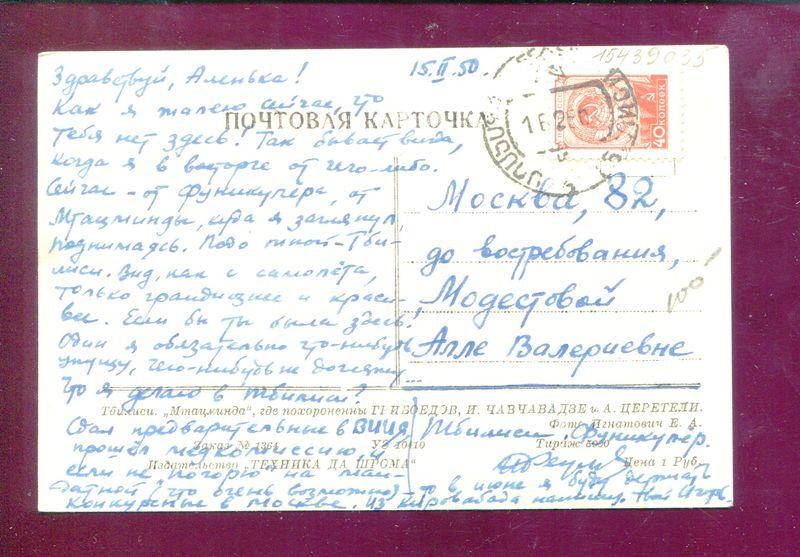 15439035
15.II.50.
Здравствуй, Аленька!
Как я жалею сейчас, что
Тебя нет здесь! Так бывает всегда,
когда я в восторге от чего-либо.
Сейчас – от Фуникулёра, от
Мтацминды, куда я заглянул,
поднимаясь. Подо мной – Тби-
лиси. Вид, как с самолёта,
только грандиознее и краси-
вее. Если бы ты была здесь!
Один я обязательно что-нибудь
упущу, чего-нибудь не догляжу
Что я делаю в Тбилиси?
Сдал предварительные в ВИИЯ,
прошёл медкомиссию, и
если не погорю на ман-
датной (что очень возможно) – то в июне я буду держать
конкурсные в Москве. Из Кировабада напишу. Твой
Тбилиси. Фуникулер.
ПОЧТОВАЯ КАРТОЧКА
40 КОПЕЕК
16 2 50
Москва, 82,
до востребования,
Модестовой
Алле Валериевне
100
Тбилиси. „Мтацминда", где похоронены ГРИБОЕДОВ, И. ЧАВЧАВАДЗЕ и А. ЦЕРЕТЕЛИ.
Фото Игнатович Е. А.
Заказ № 1364 УЭ 10410 Тираж 5000
Издательство „ТЕХНИКА ДА ШРОМА" Цена 1 Руб.